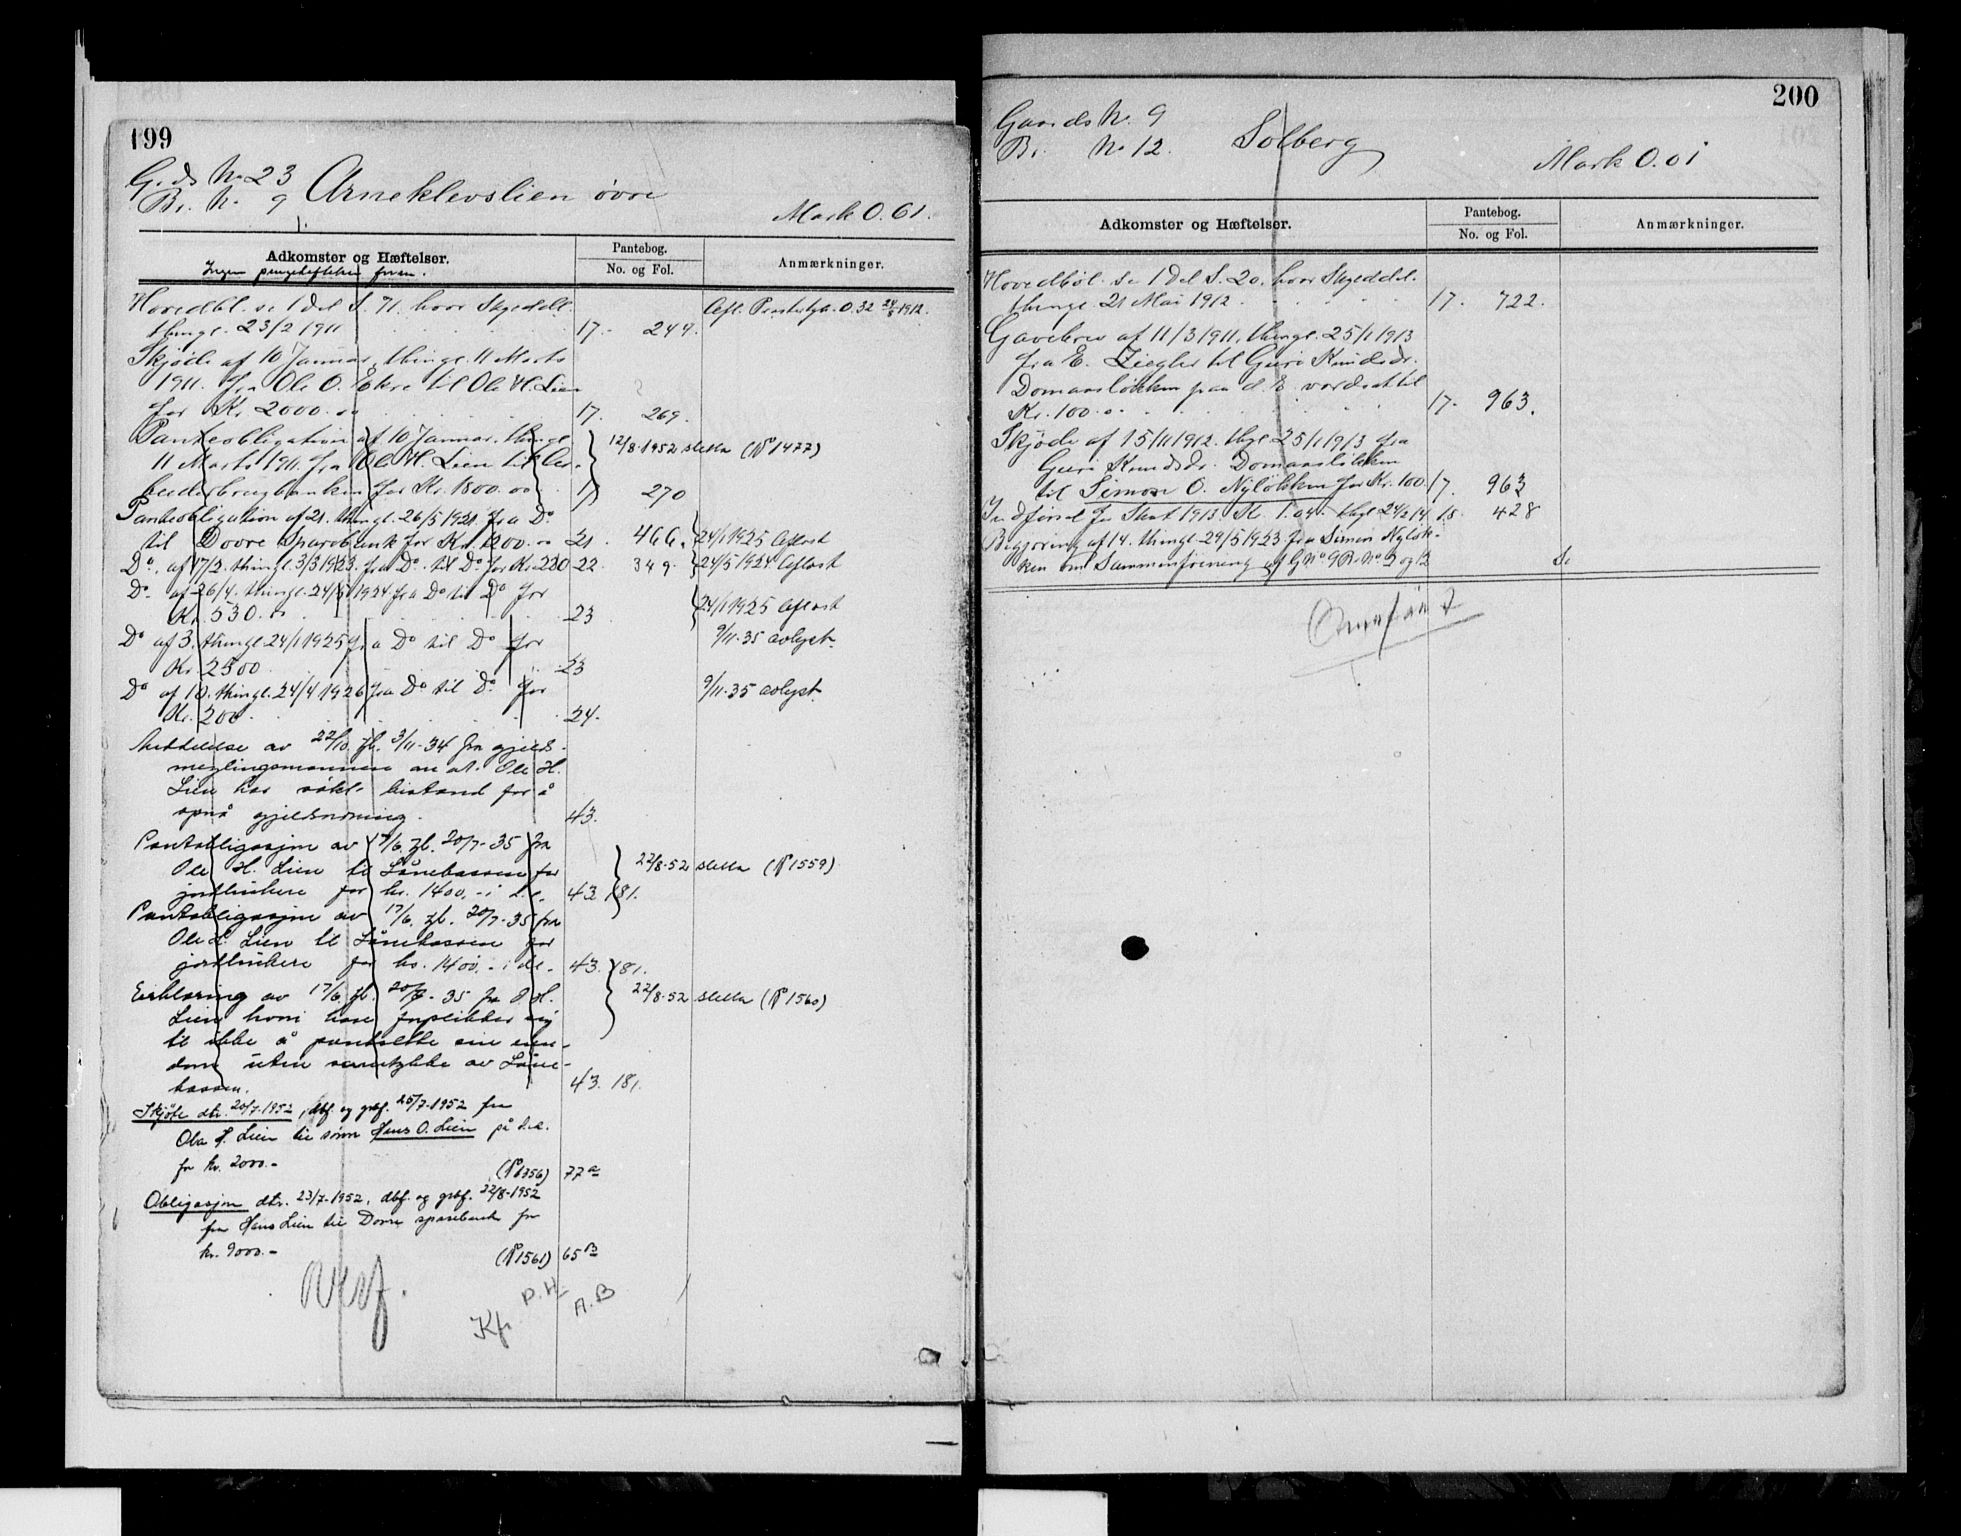 199
G.ds No 23
Br. No 9 Arneklevslien øvre
Mark 0.61.
Adkomster og Hæftelser.
Pantebog.
No. og Fol.
Anmærkninger.
Ingen pengeheftelser foran.
Hovedbl. se 1 Del S. 71. hvor Skyeddel.
thingl. 23/2 1911 17. 244.
Afl. Pantebga. 0.32 1912.
Skjøde af 10 Januar, thingl. 11 Marts
1911. fra Ole O. Ekre til Ole H. Lien
for Kr. 2000.00 17. 269.
Panteobligation af 10 Januar. thingl.
11 Marts 1911. fra Ole H. Lien til Ar-
beiderbrugbanken for Kr. 1800.00 17 270
12/8-1952 sletta (No 1477)
Panteobligation af 21. thingl. 26/5 1921. fra Do
til Dovre Sparebank for Kr. 1200.00 21. 466. 24/1 1925 Aflæst
Do. af 17/2. thingl. 3/3 1923. fra Do. til Do. for Kr. 220 22. 349. 24/5 1924 Aflæst
Do. af 26/4. thingl. 24/5 1924 fra Do til Do for
Kr. 530.00 23 24/1 1925 Aflæst
Do af 3. thingl. 24/1 1925 fra Do til Do for
Kr. 2500 23
9/11-35 avlyst.
Do af 10. thingl. 24/4 1926 fra Do til Do. for
Kr. 200 24.
9/11-35 avlyst.
Meddelelse av 22/10 gl. 3/11-34 fra gjelds-
meglingsmannen om at Ole H.
Lien har søkt bistand for å
opnå gjeldsordning. 43.
Pantobligasjon av 17/6. gl. 20/7-35 fra
Ole H. Lien til Lånekassen for
jordbrukere for kr. 1400,- i d.e. 43. 181.
22/8-52 sletta (No 1559)
Pantobligasjon av 17/6. gl. 20/7-35 fra
Ole H. Lien til Lånekassen for
jordbrukere for kr. 1400,- i de- 43. 181.
Erklæring av 17/6. gl. 20/7-35 fra O. H.
22/8-52 sletta (No 1560)
Lien hvori han forplikter sig
til ikke å pantsette sin eien-
dom uten samtykke av Låne-
kassen. 43. 181.
Skjøte dtr. 20/7-1952, dbf. og gbf. 25/7-1952 fra
Ola H. Lien til sønn Hans O. Lien på d.e.
for kr. 2000.- (No 1356) 77 a
Obligasjon dtr. 23/7-1952, dbf. og gbf. 22/8-1952
fra Hans Lien til Dovre sparebank for
kr. 9000.- (No 1561) 65 B
Kp.
P.H.
A.B
200
Gaards No. 9
Br. No 12. Solberg
Mark 0.01
Adkomster og Hæftelser.
Pantebog.
No. og Fol.
Anmærkninger.
Hovedbøl. se 1 Del S. 20, hvor Skyeddel.
thingl. 21 Mai 1912. 17. 722.
Gavebrev af 11/3 1911, thingl. 25/1 1913
fra E. Ziegler til Guri Knudsdr.
Domaasløkken paa d. E. værdsat til
Kr. 100.00 17. 963.
Skjøde af 15/11 1912. thgl. 25/1 1913 fra
Guri Knudsdr. Domaasløkken
til Simon O. Nyløkken for Kr. 100. 17. 963
Indførsel for Skat 1913. Kr. 1.04. thgl. 24/2 14 18. 428
Begjæring af 14. thingl. 29/5 1923 fra Simon Nyløk-
ken om Sammenføiening af GNo 9 B.No 9 og 12 So
Overført